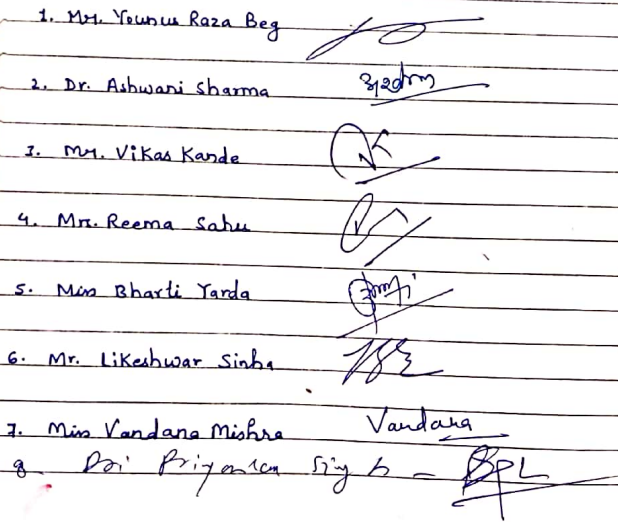 1. Mr. Younus Raza Beg
2. Dr. Ashwani Sharma
3. Mr. Vikas Kande
4. Mrs. Reema Sahu
5. Miss Bharti Yarda
6. Mr. Likeshwar Sinha
7. Miss Vandana Mishra Vandana
8 Priyanka Singh -